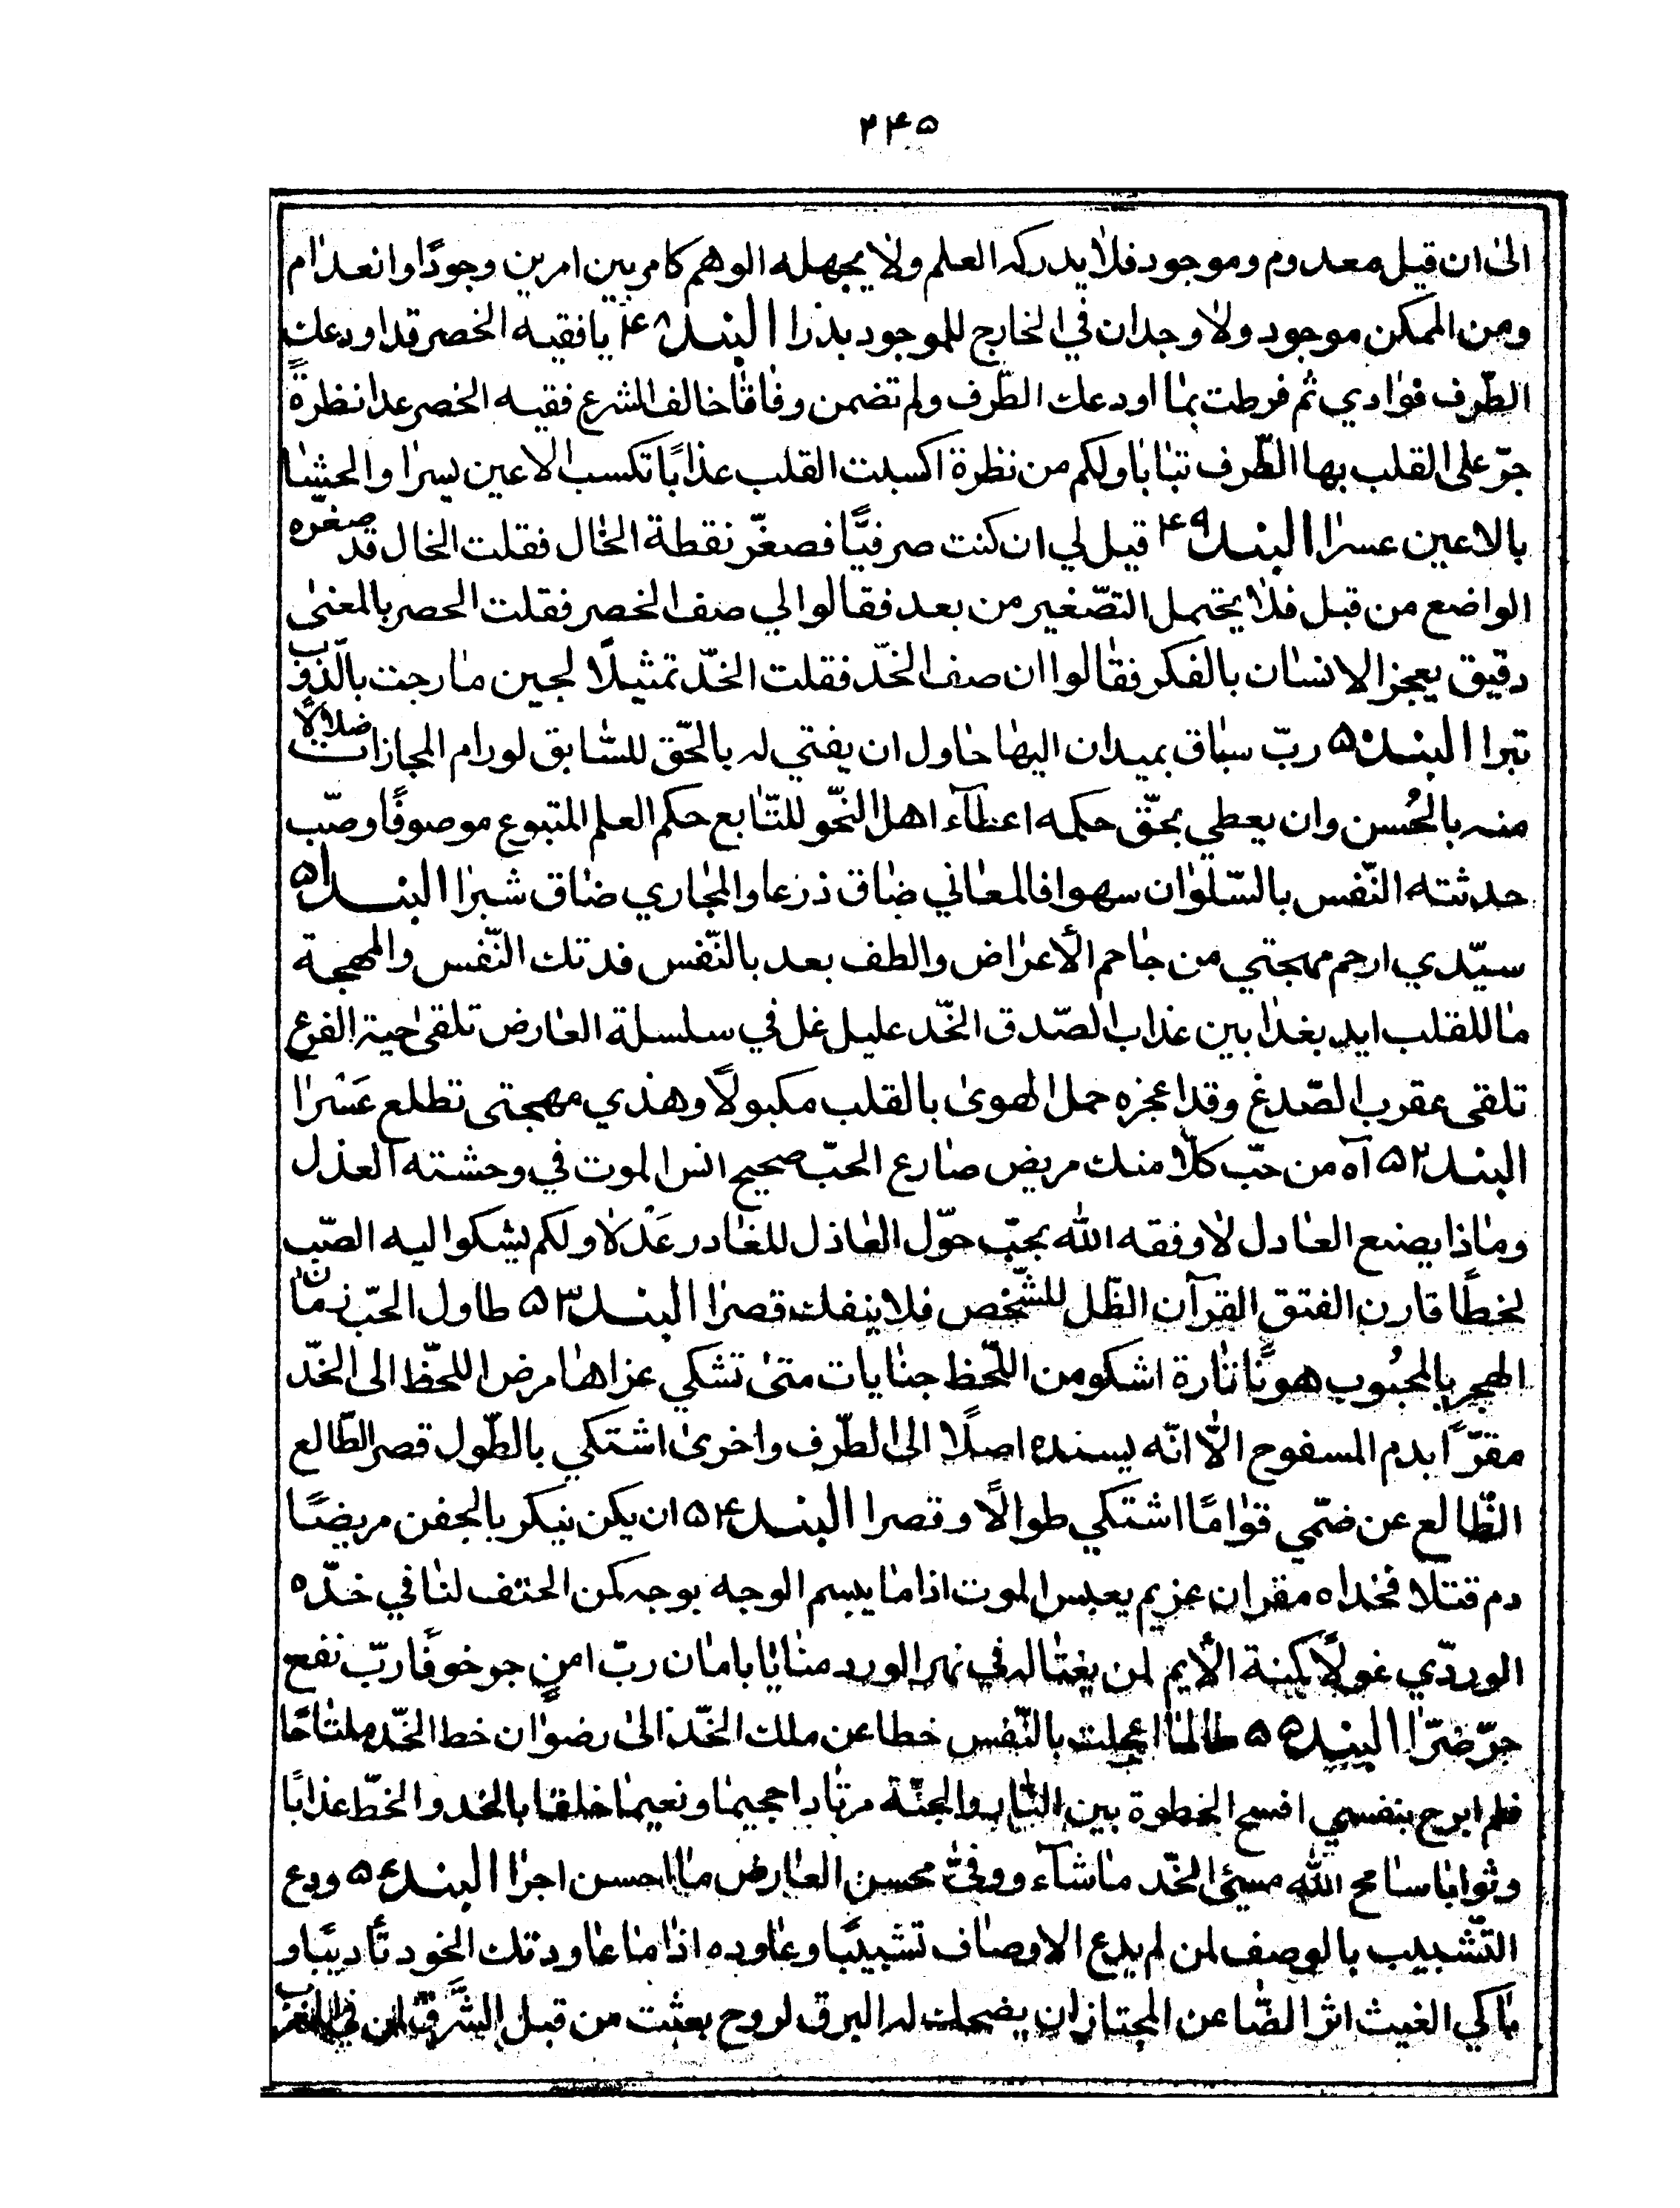 ۲۴۵
الىٰ ان قيل معدوم وموجود فلا يدركه العلم ولا يجهله الوهم كامر بين امرين وجودًا وانعدام
ومن الممكن موجود ولا وجدان في الخارج للموجود بذرا البند ۴۸ يا فقيه الخصر قد اودعك
الطّرف فوادي ثم فرطت بما اودعك الطّرف ولم تضمن وفاقا خالف الشرع فقيه الخصر عدا نظرةً
جرّ على القلب بها الطّرف تبابا ولكم من نظرة اكسبت القلب عذابًا تكسب الاعين يسرا والحشا
بالاعين عسرا البند ۴۹ قيل لي ان كنت صرفيًّا فصغّر نقطة الخال فقلت الخال قد صغّره
الواضع من قبل فلا يحتمل التصّغير من بعد فقالوا لي صف الخصر فقلت الحصر بالمعنىٰ
دقيق يعجز الانسان بالفكر فقالوا ان صف الخدّ فقلت الخدّ تمثيلًا لجين مارجت بالذّوب
تبرا البند ۵۰ ربّ سباق بميدان اليها حاول ان يفتي له بالحّق للسّابق لو رام المجازات ضلالًا
منه بالحُسن وان يعطي بحقّ حكمه اعطآء اهل النّحو للتّابع حكم العلم المتبوع موصوفًا وصّب
حدثته النّفس بالسّلوان سهوا فالمعاني ضاق ذرعا والمجاري ضاق شبرا البند ۵۱
سيّدي ارحم مهجتي من جاحم الأعراض والطف بعد بالنّفس فدتك النّفس والمهجة
ما للقلب ايد بغذا بين عذاب الصّدق الخّد عليل غل في سلسلة العارض تلقى حية الفرع
تلقى عقرب الصّدغ وقد اعجزه حمل الهوىٰ بالقلب مكبولًا وهذي مهجتى تطلع عَسْرا
البند ۵۲ آه من حبّ كلّا منك مريض صارع الحبّ صحيح انس الموت في وحشته العذل
وماذا يصنع العادل لا وفقه الله بحبّ حوّل العاذل للغادر عَذْلا ولكم يشكوا ليه الصّب
لخطًا قارن الفتق القرآن الظّل للشّخص فلا ينفك قصرا البند ۵۳ طاول الحبّ زمان
الهجر بالمحبُوب هونًا تارة اشكو من اللّحظ جنايات متىٰ تشكي عزاها مرض اللحّظ الى الخّد
مقرّاً بدم المسفوح الّا انّه يسنده اصلًا الىٰ الطّرف واخرىٰ اشتكي بالطّول قصر الطّالع
الظّالع عن ضمّي قوامًا اشتكي طوالًا وقصرا البند ۵۴ ان يكن نيكر بالجفن مريضًا
دم قتلا فخداه مقران عزيم يعبس الموت اذا ما يبسم الوجه بوجه كمن الحتف لنا في خدّه
الوردّي غولًا كمنة الأيم لمن يغتاله في نهر الورد منايا بامان ربّ امنٍ جو خوفًا ربّ نفع
جرّ ضرّا البند ۵۵ طالما اعجلت بالنّفس خطا عن ملك الخّد الىٰ رضوان خط الخّد ملتاحًا
فلم ابرح بنفسي افسح الخطوة بين النّار والجنّة مرتادا جحيما ونعيما خلقا بالخد والخطّ عذابًا
وثوابا سامح الله مسئي الخّد ماشآء ووفىّ محسن العارض ما احسن اجرا البند ۵۶ ودع
التّشبيب بالوصف لمن لم يدع الاوصاف تشبيبًا وعاوده اذا ما عاودتك الخود تأديبًا و
باكي الغيث اثر الضّاعن المجتاز ان يضحك له البرق لروح بعثت من قبل الشّرق لمن في الغرب